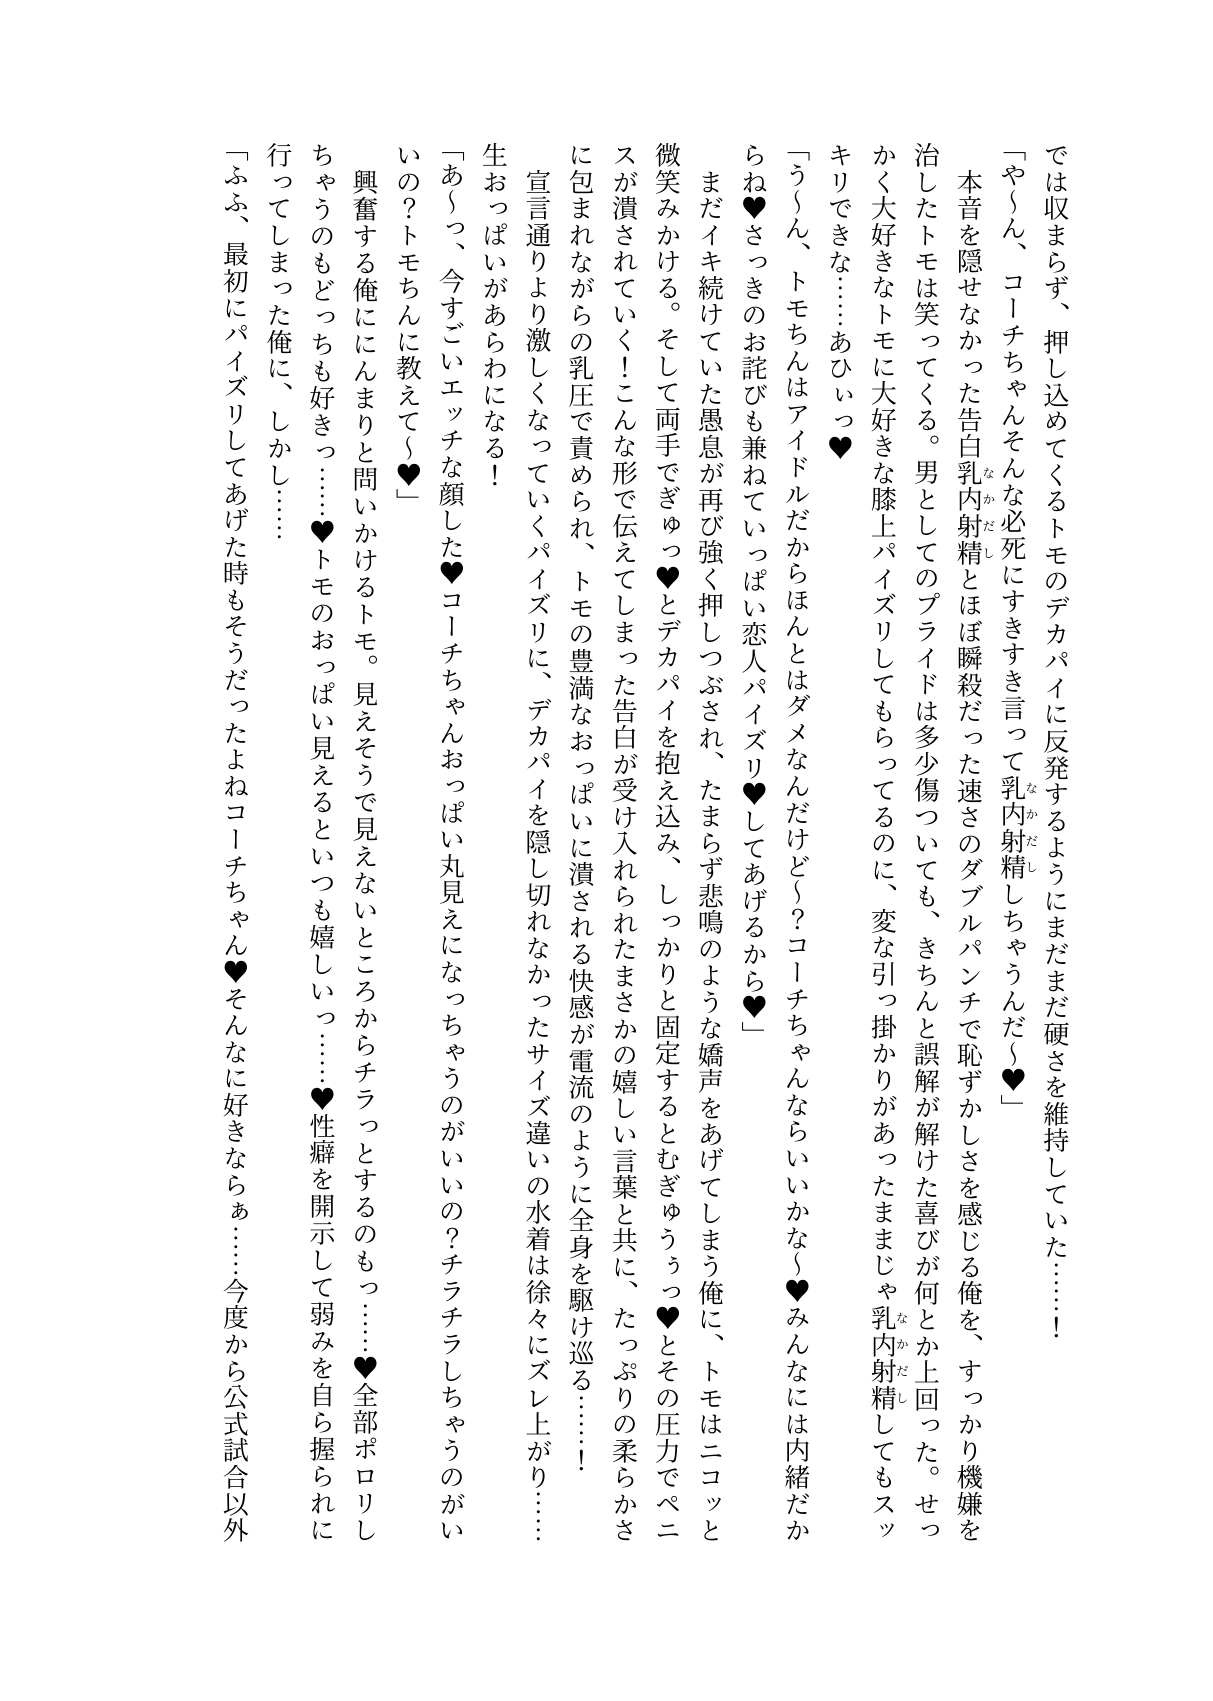 では収まらず、押し込めてくるトモのデカパイに反発するようにまだまだ硬さを維持していた……！
「や～ん、コーチちゃんそんな必死にすきすき言って乳内射精しちゃうんだ～♥」
本音を隠せなかった告白乳内射精とほぼ瞬殺だった速さのダブルパンチで恥ずかしさを感じる俺を、すっかり機嫌を
治したトモは笑ってくる。男としてのプライドは多少傷ついても、きちんと誤解が解けた喜びが何とか上回った。せっ
かく大好きなトモに大好きな膝上パイズリしてもらってるのに、変な引っ掛かりがあったままじゃ乳内射精してもスッ
キリできな……あひぃっ♥
「う～ん、トモちんはアイドルだからほんとはダメなんだけど～？コーチちゃんならいいかな～♥みんなには内緒だか
らね♥さっきのお詫びも兼ねていっぱい恋人パイズリ♥してあげるから♥」
まだイキ続けていた愚息が再び強く押しつぶされ、たまらず悲鳴のような嬌声をあげてしまう俺に、トモはニコッと
微笑みかける。そして両手でぎゅっ♥とデカパイを抱え込み、しっかりと固定するとむぎゅうぅっ♥とその圧力でペニ
スが潰されていく！こんな形で伝えてしまった告白が受け入れられたまさかの嬉しい言葉と共に、たっぷりの柔らかさ
に包まれながらの乳圧で責められ、トモの豊満なおっぱいに潰される快感が電流のように全身を駆け巡る……！
宣言通りより激しくなっていくパイズリに、デカパイを隠し切れなかったサイズ違いの水着は徐々にズレ上がり……
生おっぱいがあらわになる！
「あ～っ、今すごいエッチな顔した♥コーチちゃんおっぱい丸見えになっちゃうのがいいの？チラチラしちゃうのがい
いの？トモちんに教えて～♥」
興奮する俺ににんまりと問いかけるトモ。見えそうで見えないところからチラっとするのもっ……♥全部ポロリし
ちゃうのもどっちも好きっ……♥トモのおっぱい見えるといつも嬉しいっ……♥性癖を開示して弱みを自ら握られに
行ってしまった俺に、しかし……
「ふふ、最初にパイズリしてあげた時もそうだったよねコーチちゃん♥そんなに好きならぁ……今度から公式試合以外